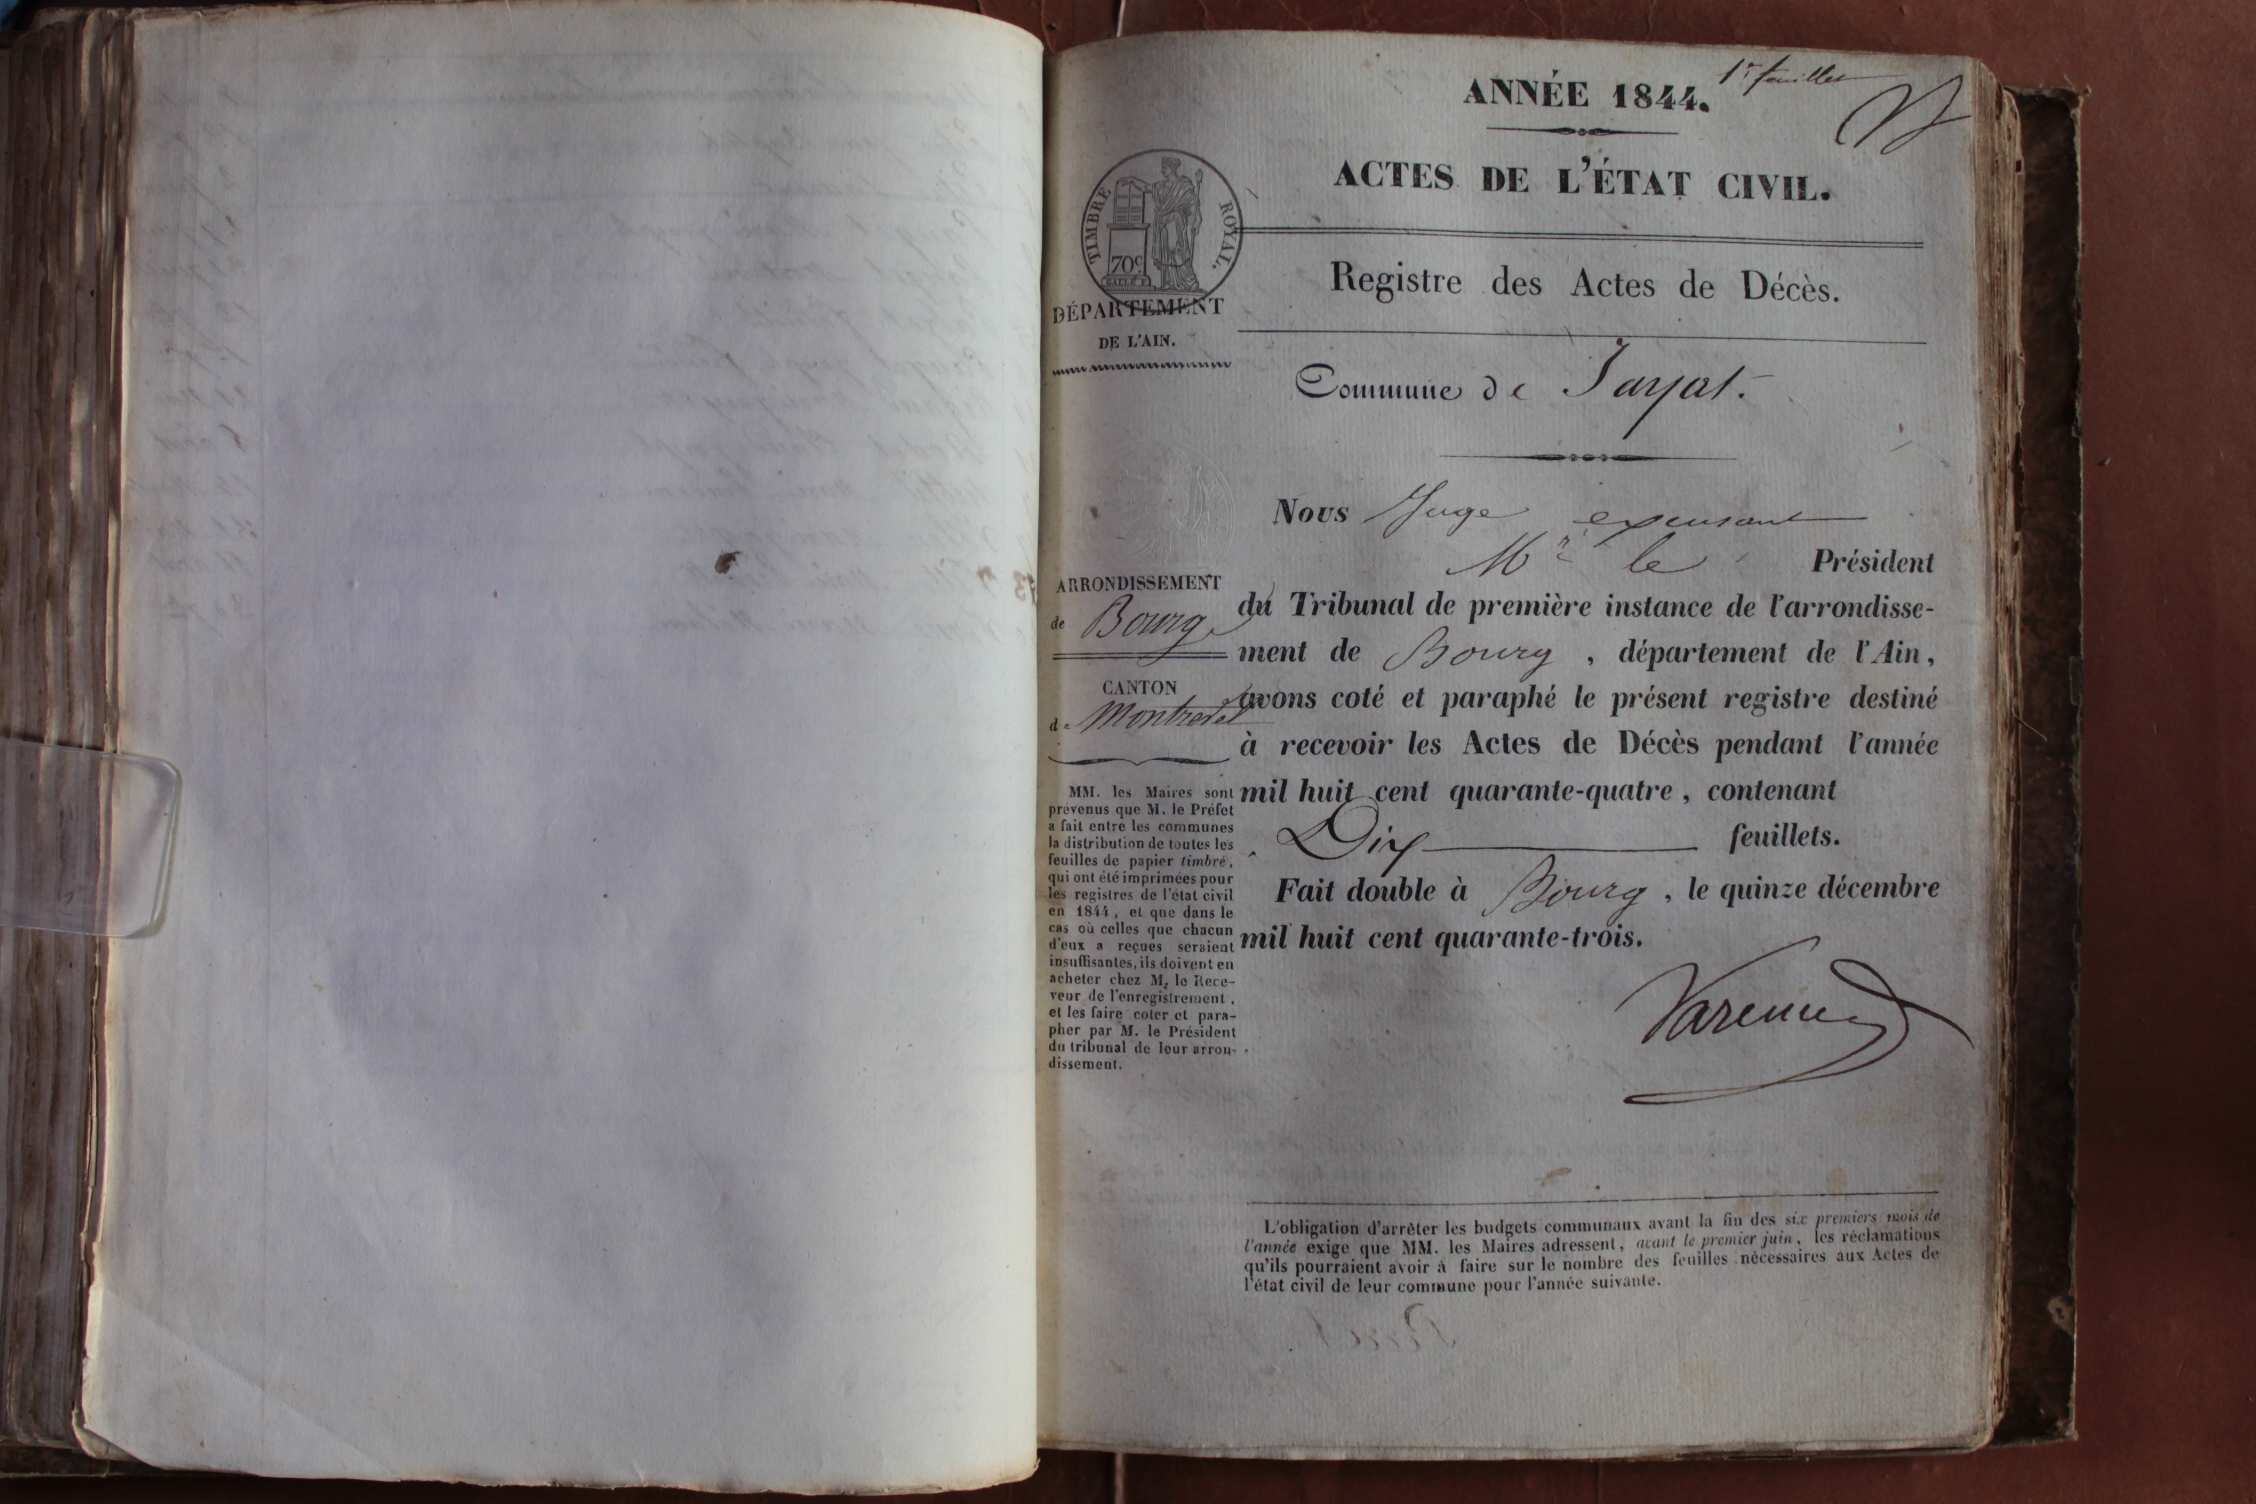 1r feuillet
ANNÉE 1844.
ACTES DE L'ÉTAT CIVIL.
TIMBRE ROYAL.
70c
DÉPARTEMENT
DE L'AIN.
Registre des Actes de Décès.
Commune de Jayat.
ARRONDISSEMENT
de Bourg
CANTON
de Montrevel
MM. les Maires sont
prévenus que M. le Préfet
a fait entre les communes
la distribution de toutes les
feuilles de papier timbré,
qui ont été imprimées pour
les registres de l'état civil
en 1844, et que dans le
cas où celles que chacun
d'eux a reçues seraient
insuffisantes, ils doivent en
acheter chez M. le Rece-
veur de l'enregistrement,
et les faire coter et para-
pher par M. le Président
du tribunal de leur arron-
dissement.
Nous Juge
Mr le Président
du Tribunal de première instance de l'arrondisse-
ment de Bourg, département de l'Ain,
avons coté et paraphé le présent registre destiné
à recevoir les Actes de Décès pendant l'année
mil huit cent quarante-quatre, contenant
Dix feuillets.
Fait double à Bourg, le quinze décembre
mil huit cent quarante-trois.
L'obligation d'arrêter les budgets communaux avant la fin des six premiers mois de
l'année exige que MM. les Maires adressent, avant le premier juin, les réclamations
qu'ils pourraient avoir à faire sur le nombre des feuilles nécessaires aux Actes de
l'état civil de leur commune pour l'année suivante.